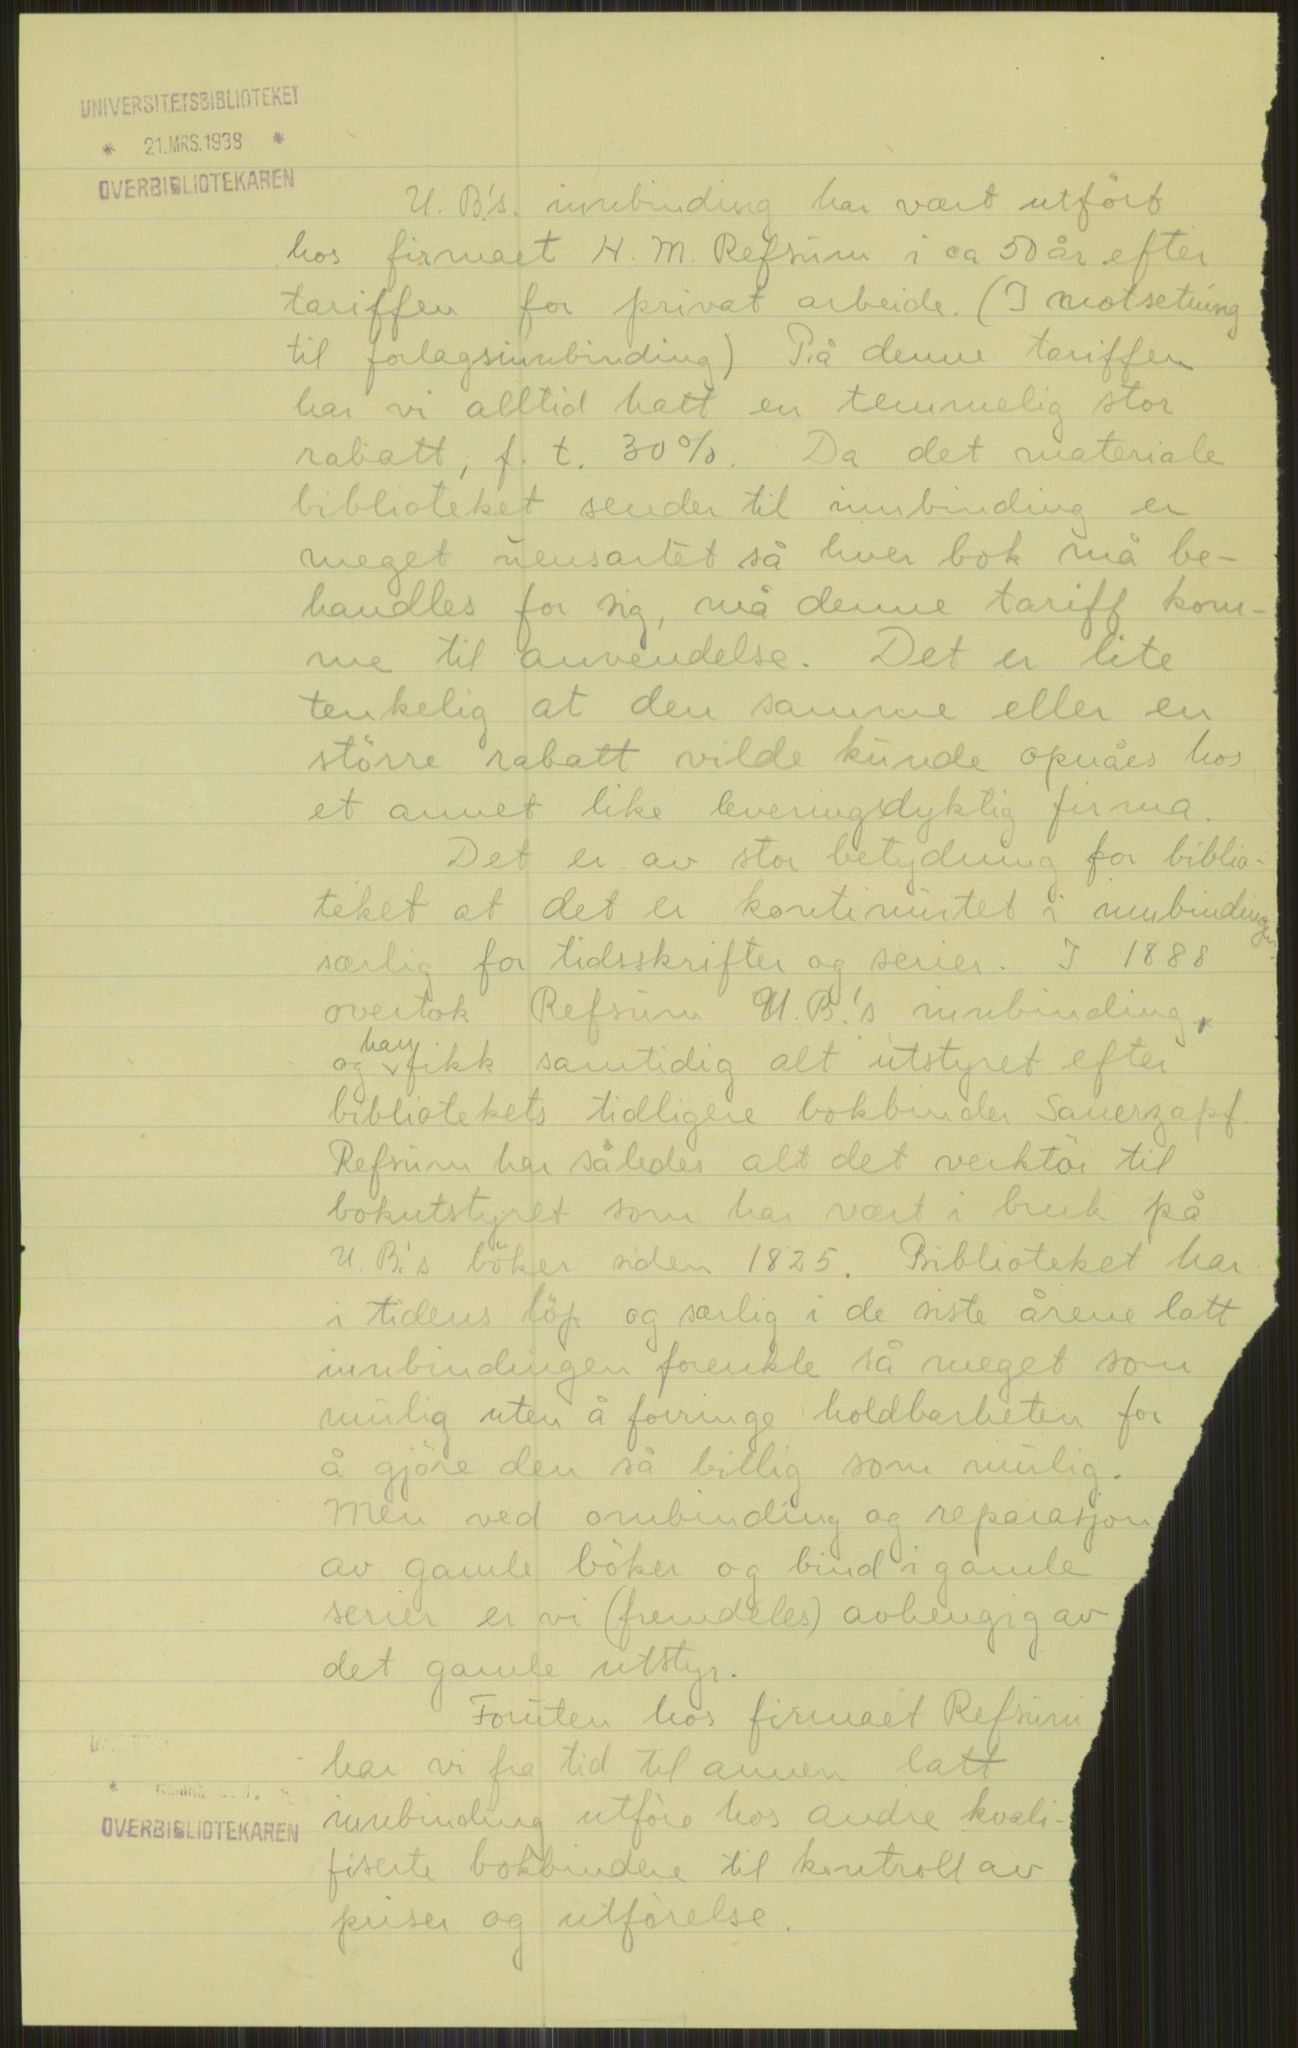 UNIVERSITETSBIBLIOTEKET
* 21. MRS. 1938 *
OVERBIBLIOTEKAREN
U. B.'s. innbinding har vært utfört
hos firmaet H. M. Refsum i ca 50 år efter
tariffen for privat arbeide. (I motsetning
til forlagsinnbinding) På denne tariffen
har vi alltid hatt en temmelig stor
rabatt, f. t. 30%. Da det materiale
biblioteket sender til innbinding er
meget uensartet så hver bok må be-
handles for sig, må denne tariff kom-
me til anvendelse. Det er lite
tenkelig at den samme eller en
större rabatt vilde kunde opnåes hos
et annet like leveringsdyktig firma.
Det er av stor betydning for biblio-
teket at det er kontinuitet i innbindingen
særlig for tidsskrifter og serier. I 1888
overtok Refsum U. B.'s innbinding,
og han fikk samtidig alt utstyret efter
bibliotekets tidligere bokbinder Sauerzapf.
Refsum har således alt det verktöi til
bokutstyret som har vært i bruk på
U. B.'s böker siden 1825. Biblioteket har
i tidens löp og særlig i de siste årene latt
innbindingen forenkle så meget som
mulig uten å forringe holdbarheten for
å gjöre den så billig som mulig.
Men ved ombinding og reparasjon
av gamle böker og bind i gamle
serier er vi (fremdeles) avhengig av
det gamle utstyr.
Foruten hos firmaet Refsum
har vi fra tid til annen latt
innbinding utföre hos andre kvali-
fiserte bokbindere til kontroll av
priser og utförelse.
OVERBIBLIOTEKAREN